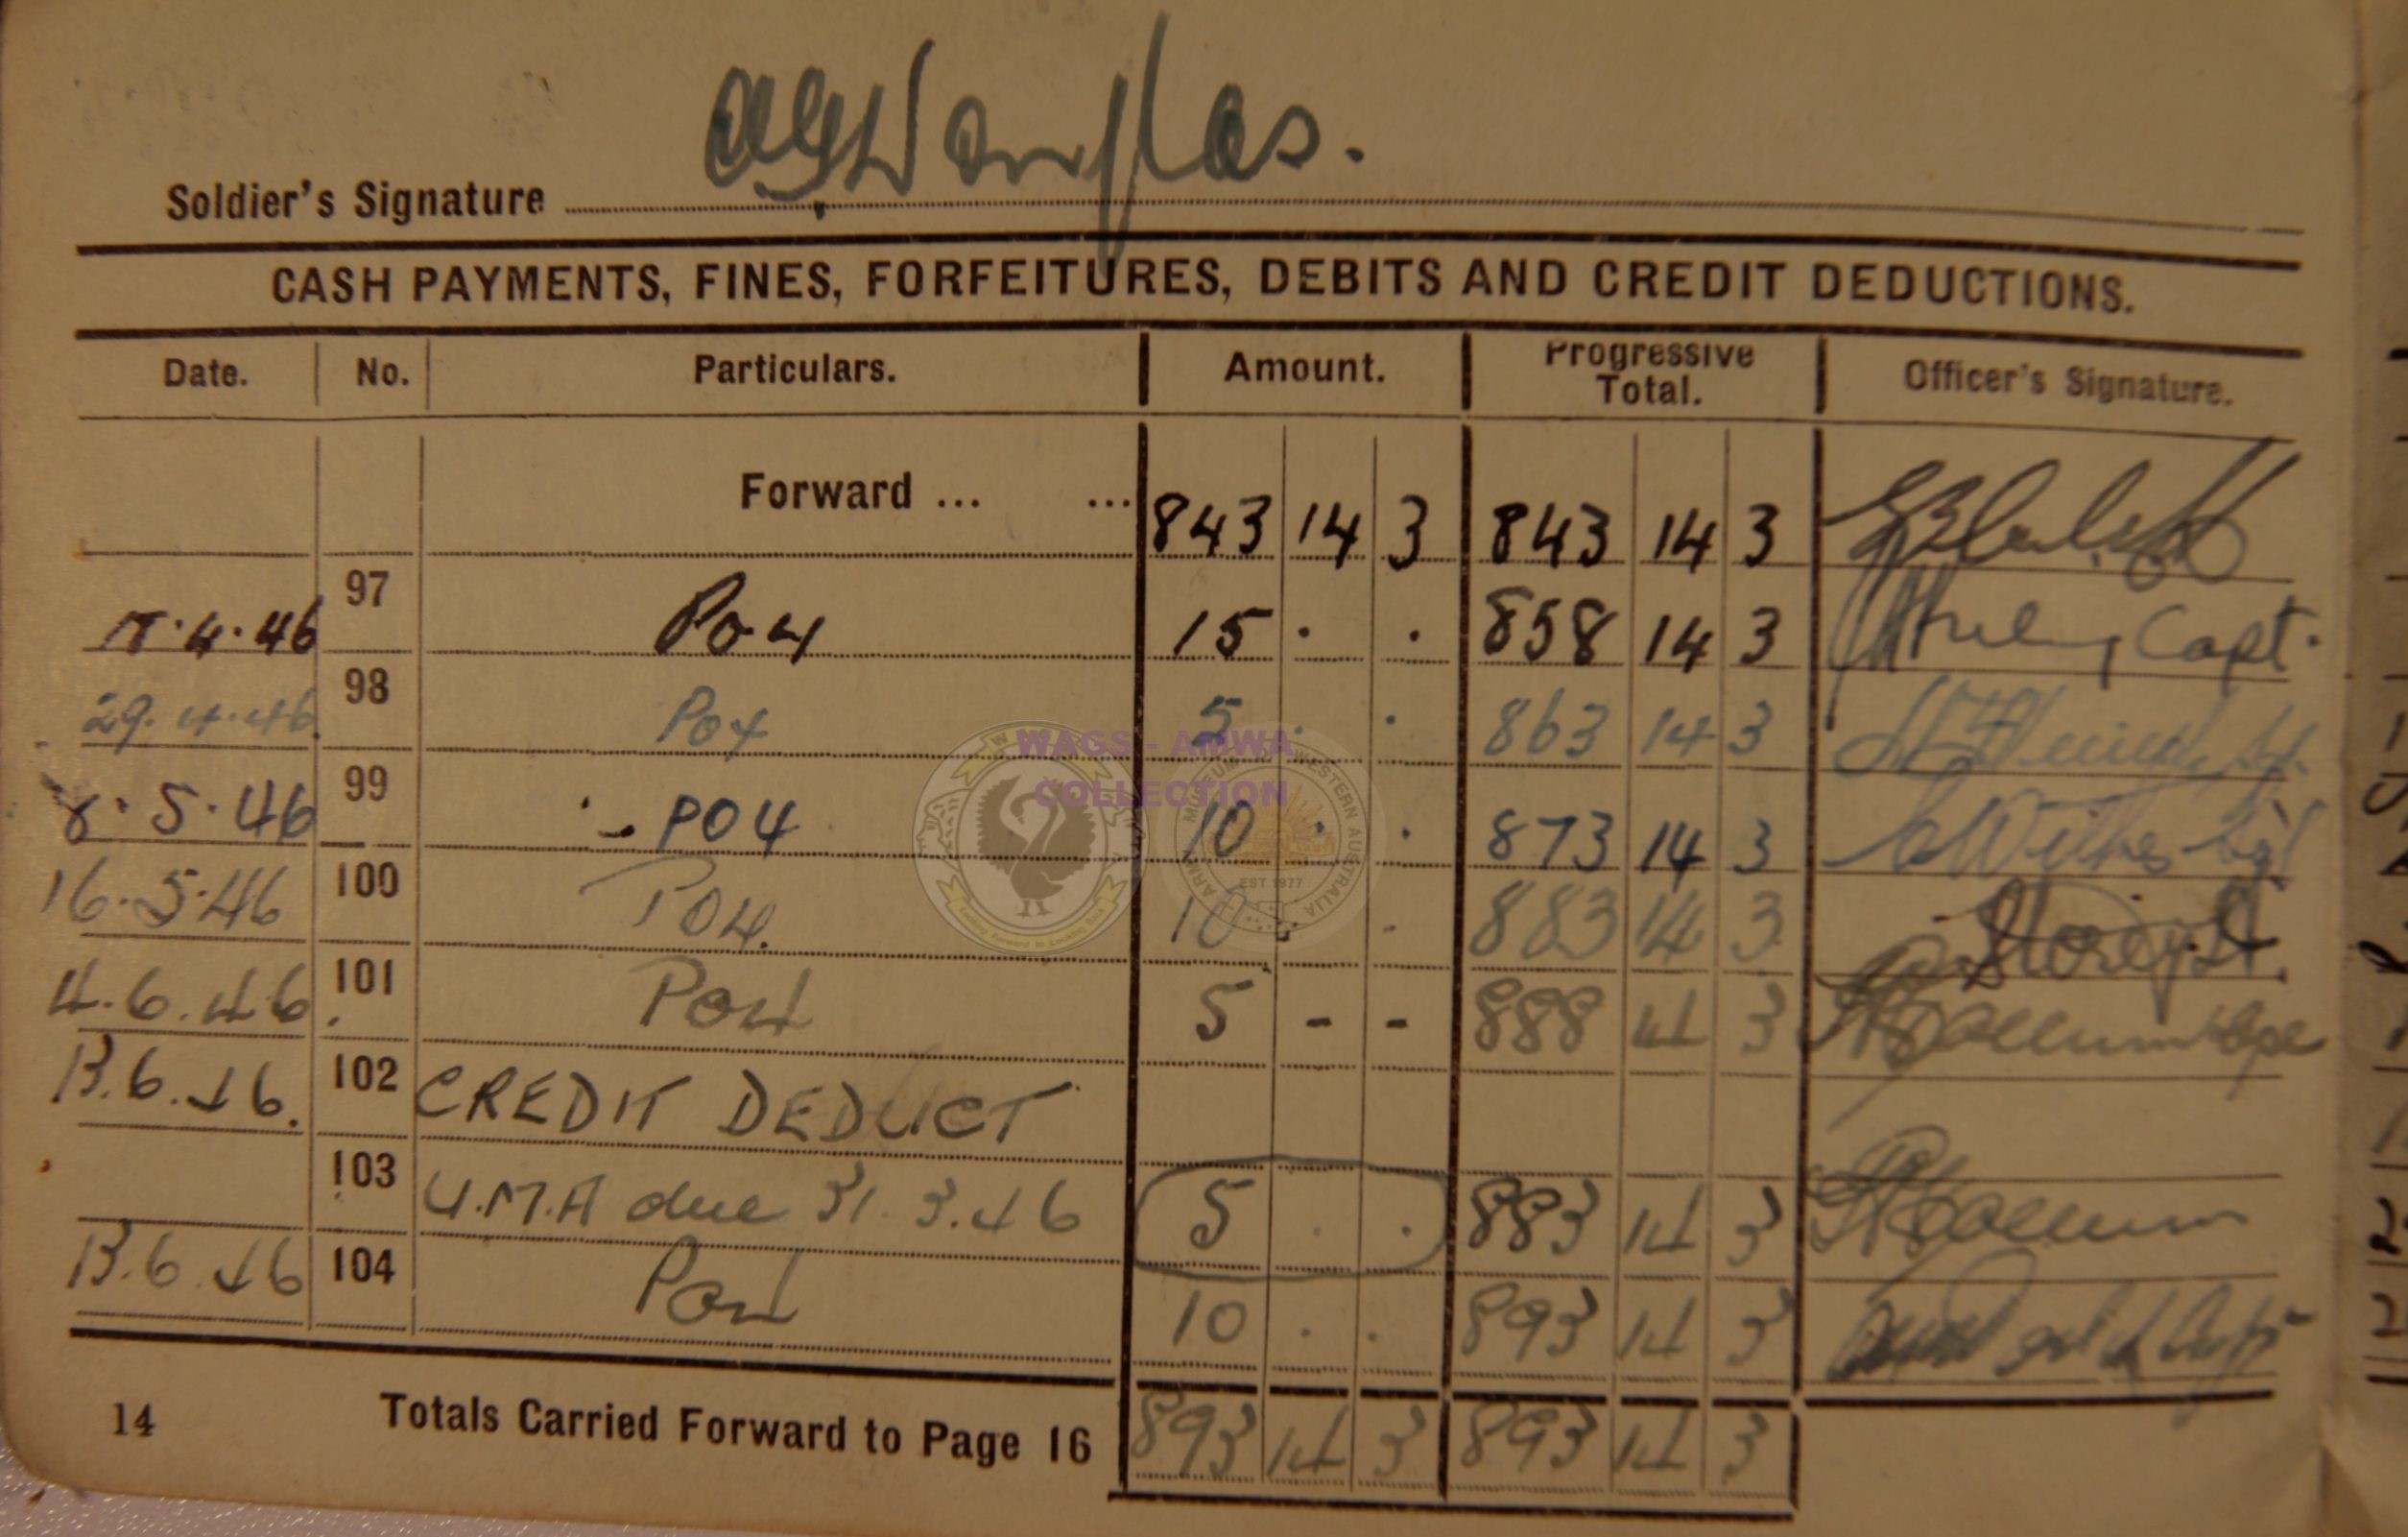 Soldier's Signature Douglas.
CASH PAYMENTS, FINES, FORFEITURES, DEBITS AND CREDIT DEDUCTIONS.
Date. No. Particulars. Amount. Progressive Total. Officer's Signature.
Forward ... ... 843 14 3 843 14 3
4.46 97 Po4 15 . . 858 14 3 Capt.
29.4.46. 98 Po4 5 . . 863 14 3
8.5.46 99 PO4 10 . . 873 14 3
16.5.46 100 PO4. 10 . . 883 14 3
4.6.46. 101 Po4 5 - - 888 14 3
13.6.46. 102 CREDIT DEDUCT
103 U.M.A due 31.3.46 5 . . 883 14 3
13.6.46 104 Po4 10 . . 893 14 3
14 Totals Carried Forward to Page 16 893 14 3 893 14 3
WAGS - AMWA
COLLECTION
EST 1977